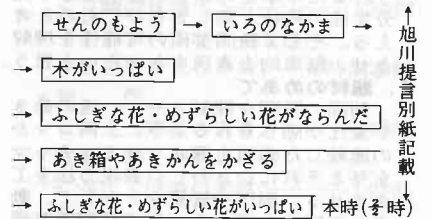 せんのもよう → いろのなかま →
→ 木がいっぱい
→ ふしぎな花・めずらしい花がならんだ
→ あき箱やあきかんをかざる
→ ふしぎな花・めずらしい花がいっぱい 本時(2/8時)
旭川提言別紙記載